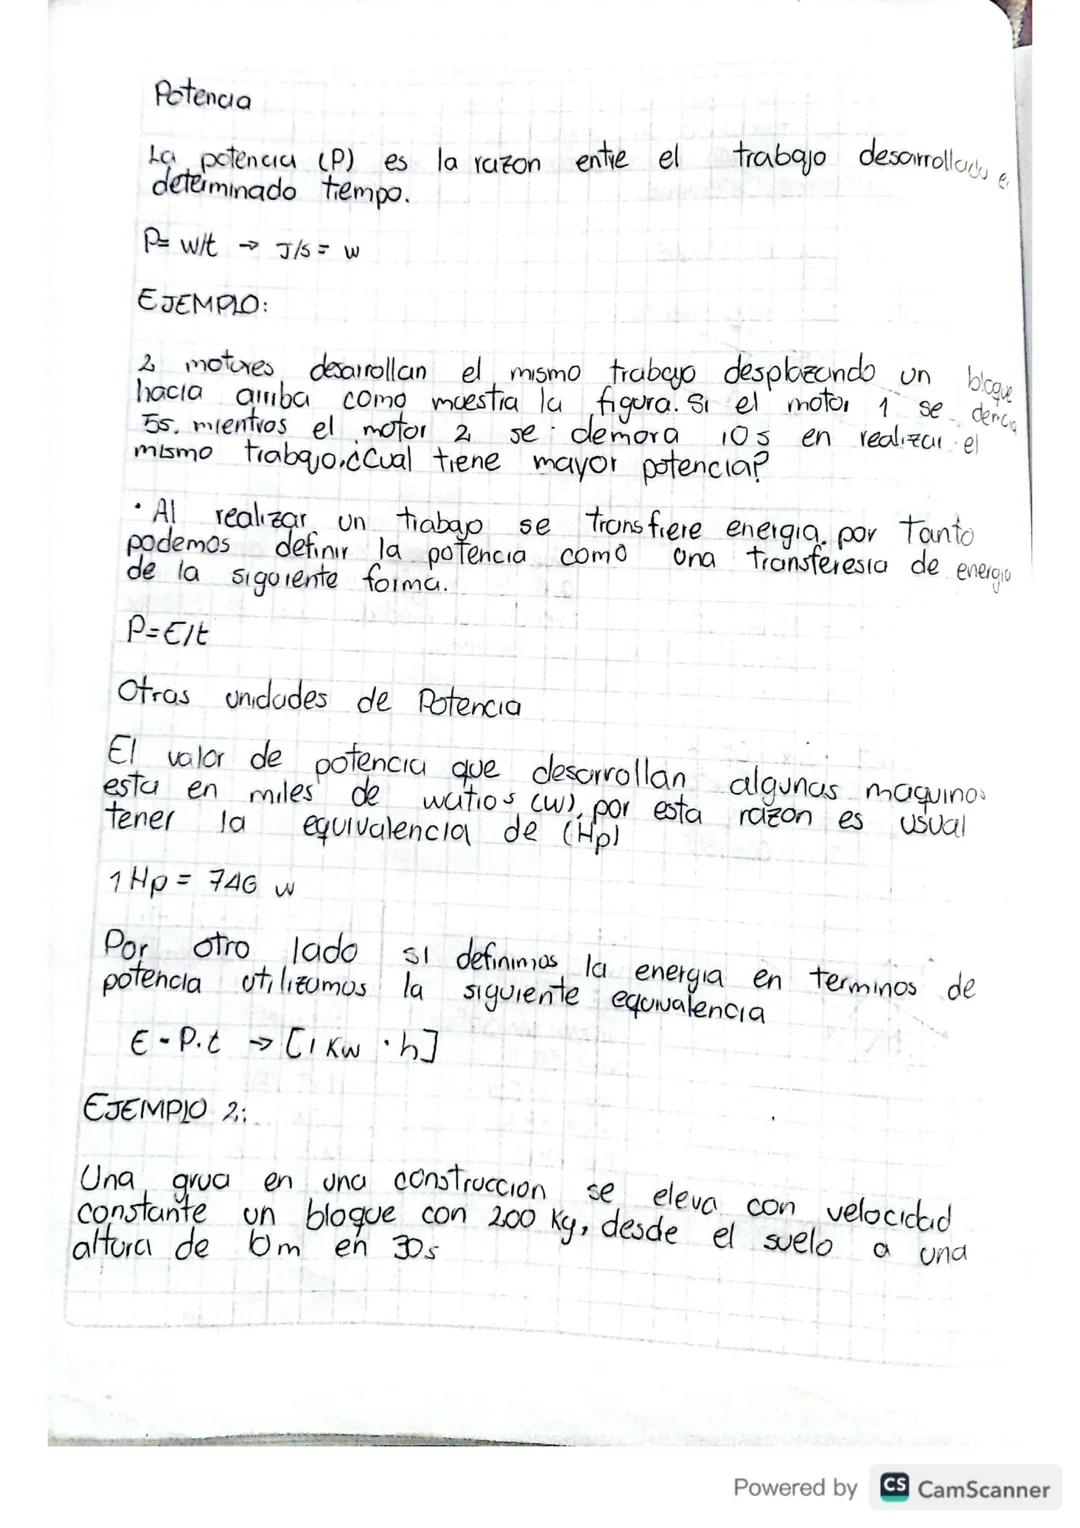 Potencia
La potencia (P) es la razon entre el trabajo desarrollado e
determinado tiempo.
P= w/t → J/s = w
EJEMPLO:
2 motores desarrollan el mismo trabajo desplazando un bloque
hacia arriba como muestra la figura. Si el motor 1 se
5s. mientras el motor 2 se demora 10s en realizar el
mismo trabajo.¿Cual tiene mayor potencia?
• Al realizar un trabajo se transfiere energia. por Tanto
podemos definir la potencia como una transferesia de energia
de la siguiente forma.
P=E/t
Otras unidades de Potencia
El valor de potencia que desarrollan algunas maquinas
esta en miles de watios (w), por esta razon es usual
tener la equivalencia de (Hp)
1 Hp = 746 w
Por otro lado si definimos la energia en terminos de
potencia utilizamos la siguiente equivalencia
E = P.t → [1 Kw · h]
EJEMPLO 2:
Una grua en una construccion se eleva con velocidad
constante un bloque con 200 Kg, desde el suelo a una
altura de m en 30s
Powered by CS CamScanner